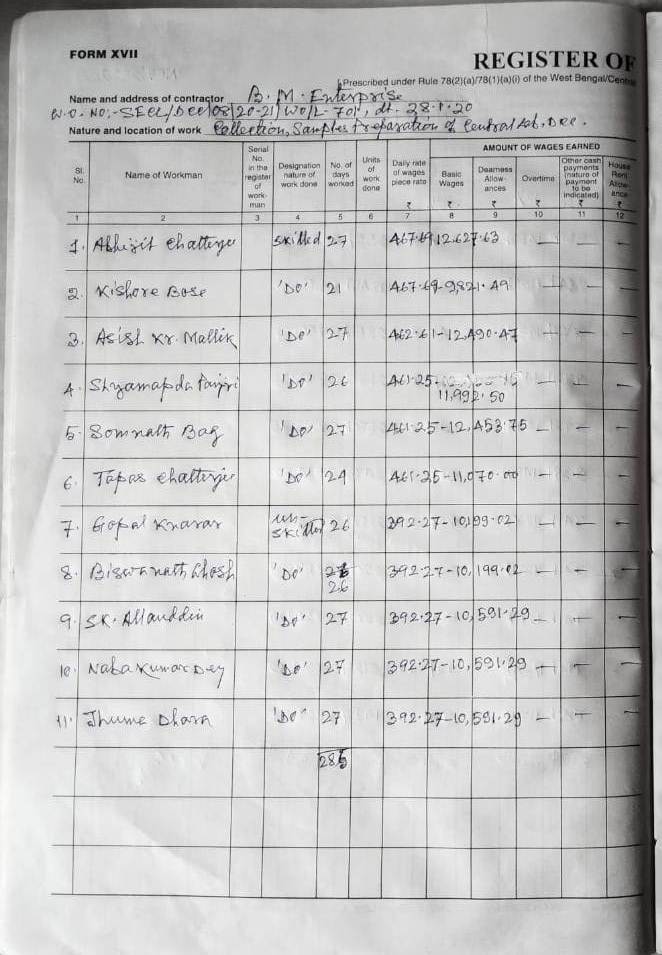 FORM XVII
REGISTER OF
Prescribed under Rule 78(2)(a)/78(1)(a)(i) of the West Bengal/Central
Name and address of contractor B. M. Enterprise
W.O. NO:- SECL/DCC/08/20-21/WO/L-701, dt. 28.1.20
Nature and location of work Collection, Samples Preparation of Central Lab, Dcc.
Sl. No. Name of Workman Serial No. in the register of work-man Designation nature of work done No. of days worked Units of work done Daily rate of wages piece rate ₹ AMOUNT OF WAGES EARNED Basic Wages ₹ Dearness Allow-ances ₹ Overtime ₹ Other cash payments (nature of payment to be indicated) ₹ House Rent Allow-ance ₹
1 2 3 4 5 6 7 8 9 10 11 12
1. Abhijit Chatterjee Skilled 27 467.69 12.627.63 — — —
2. Kishore Bose 'Do' 21 467.69-9,821.49 — — —
3. Asish Kr. Mallik 'Do' 27 462.61-12,490.47 — — —
4. Shyamapda 'Do' 26 461.25- — — —
11,992.50
5. Somnath Bag 'Do' 27 461.25-12,453.75 — — —
6. Tapas Chatterjee 'Do' 24 461.25-11,070.00 — — —
7. Gopal un-skilled 26 392.27-10,199.02 — — —
8. Biswanath Ghosh 'Do' 392.27-10,199.02 — — —
26
9. SK. Allauddin 'Do' 27 392.27-10,591.29 — — —
10. Naba Kumar Dey 'Do' 27 392.27-10,591.29 — — —
11. Jhuma Dhara 'Do' 27 392.27-10,591.29 — — —
285